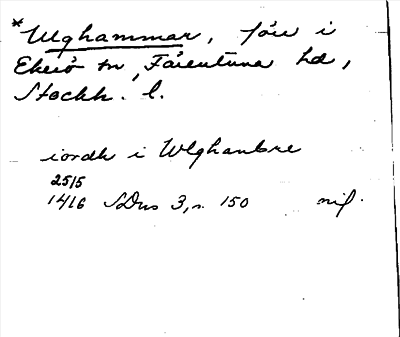 *Ughammar, förr i
Ekerö sn, Färentuna hd,
Stockh. l.
iordh i Wlghambre
25/5
1416 SDns 3, s. 150 nif.